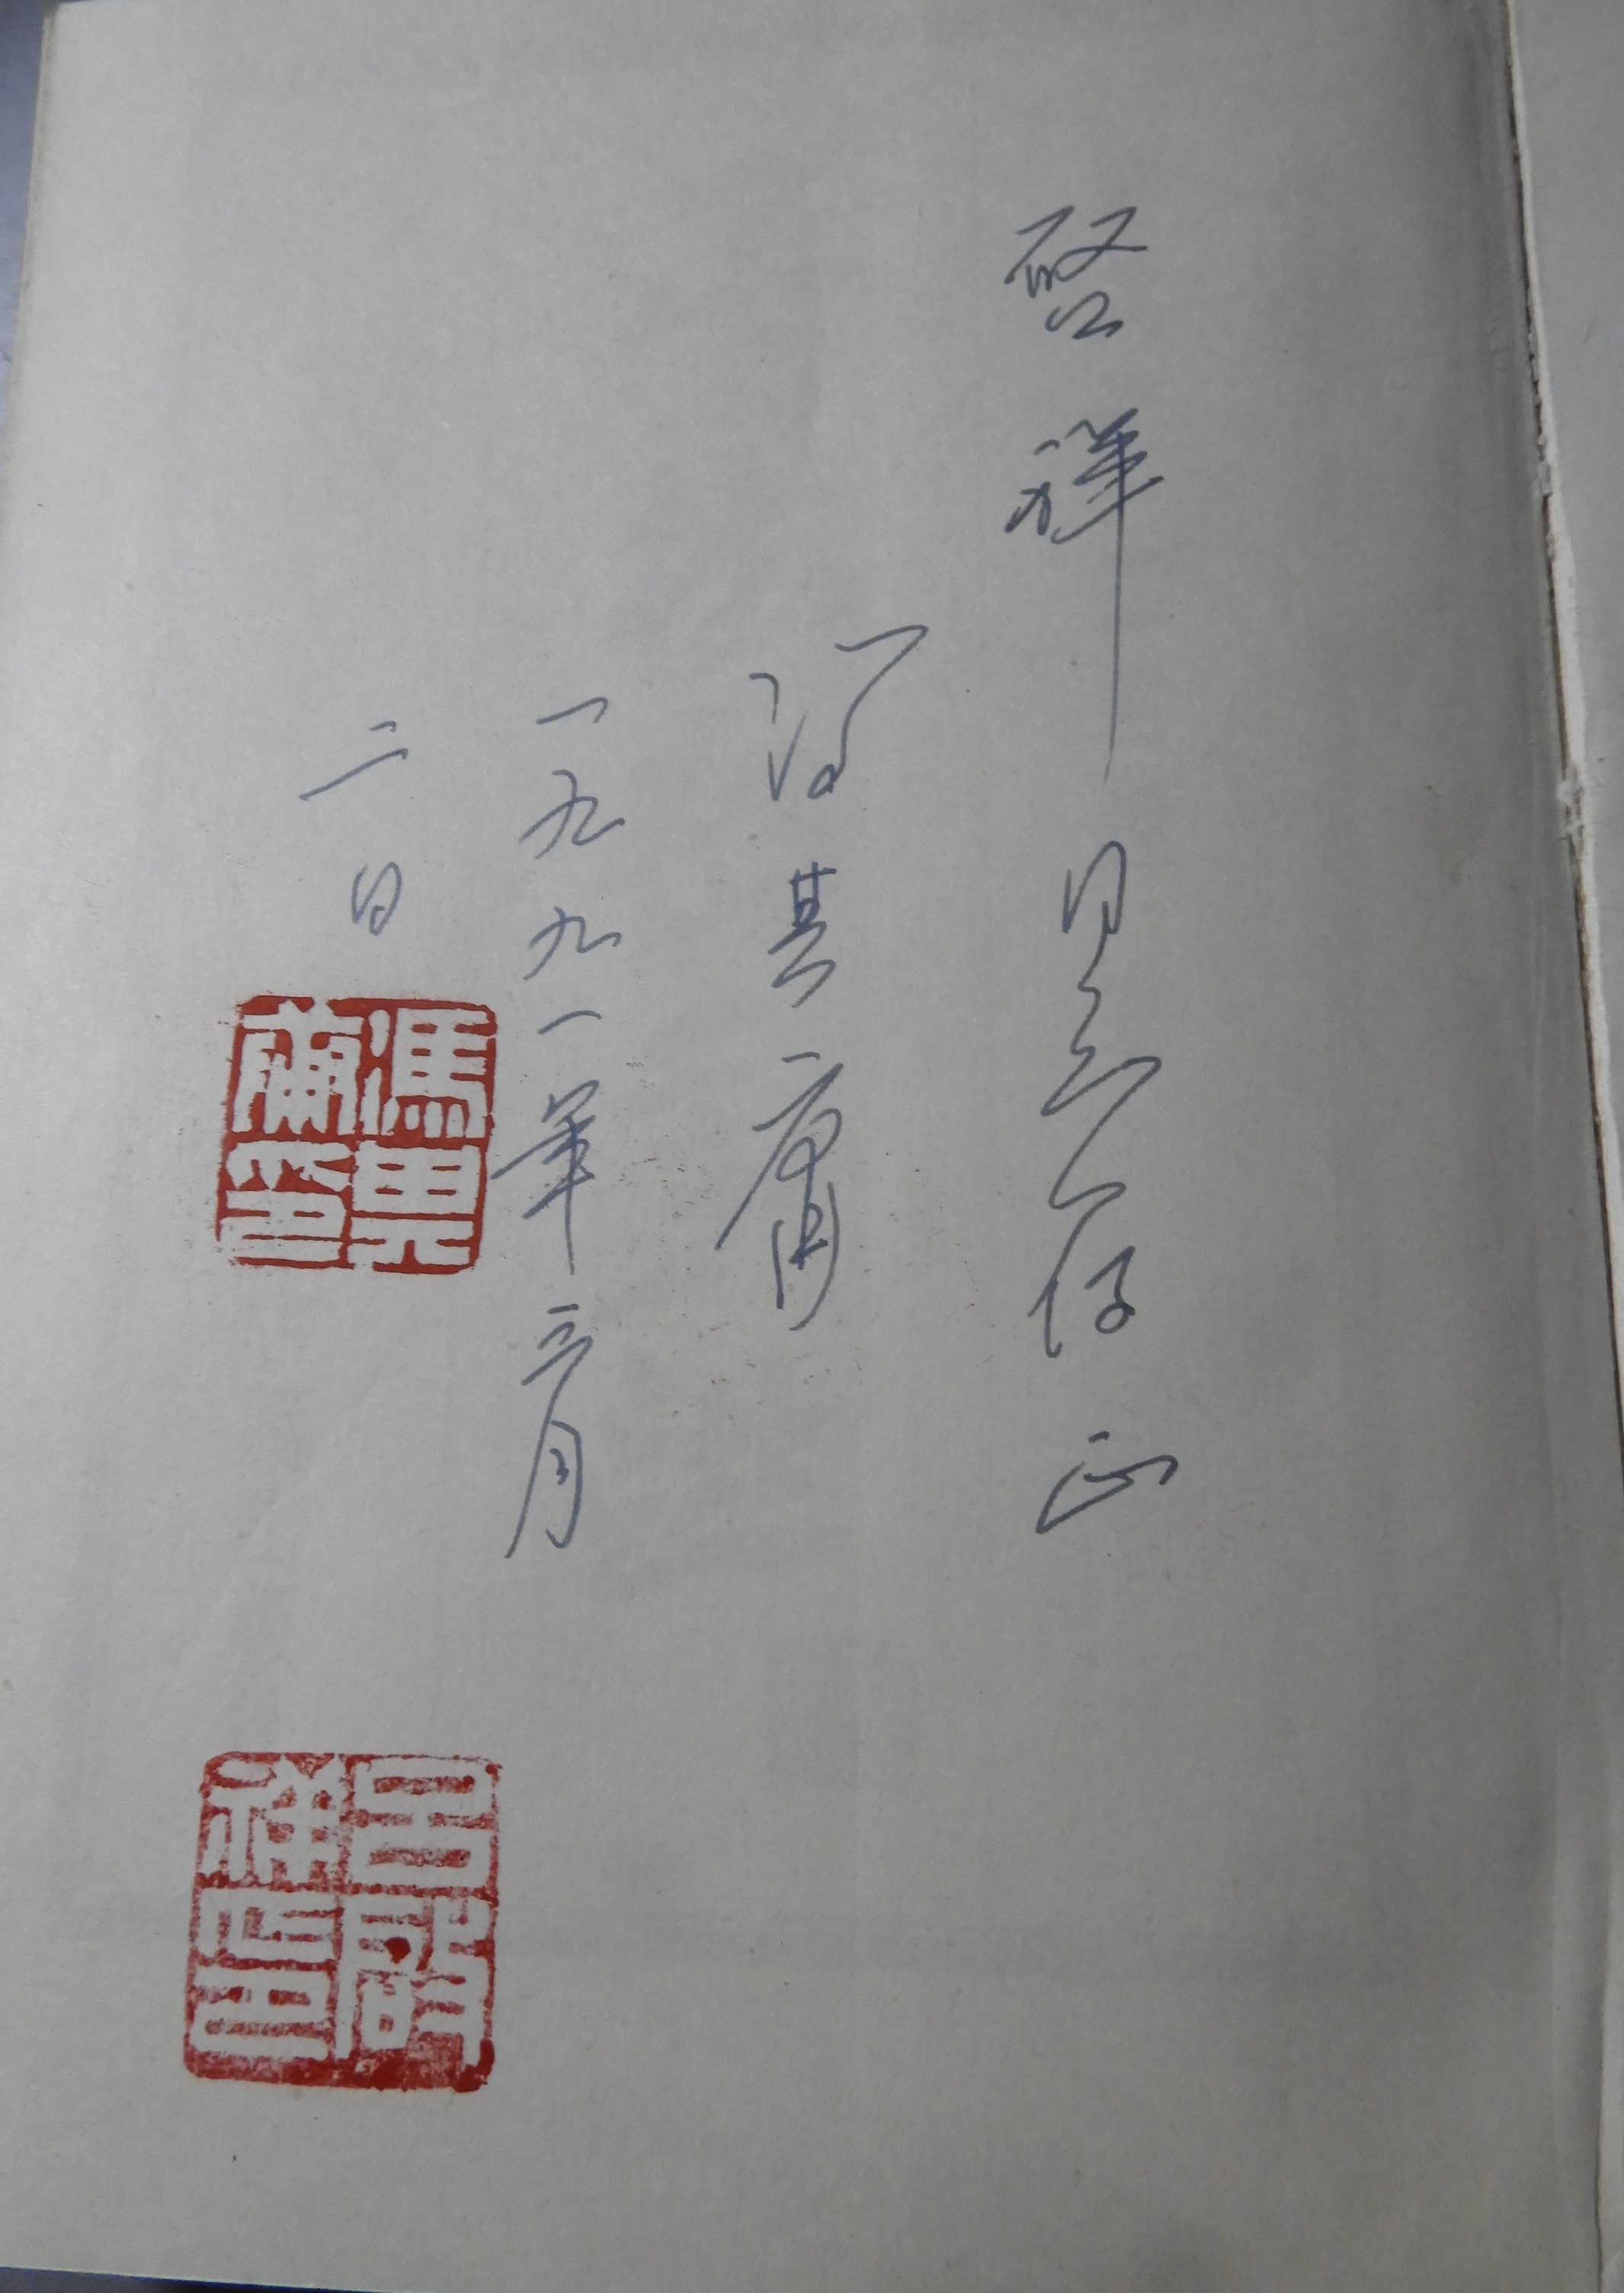 啓祥同志存正
冯其庸
一九九一年三月
二日
馮其庸印
吕啟祥印